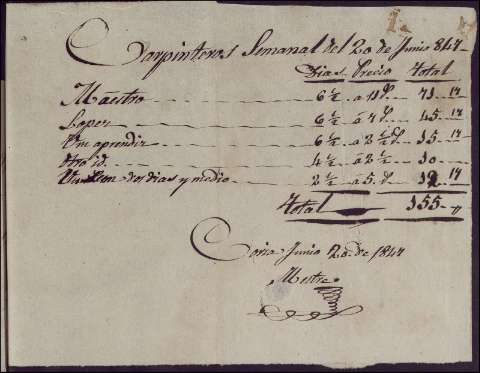 Carpinteros Semanal del 20 de Junio 1847
Dias Precio Total
Maestro 6 ½ a 11 71 17
Lopez 6 ½ a 7 45 17
Un aprendiz 6 ½ a 2 ½ 15 17
Otro id. 4 ½ a 2 ½ 10
Un Peon dos dias y medio 2 ½ a 5 12 17
Total 155
Coria Junio 20 de 1847
Mestre